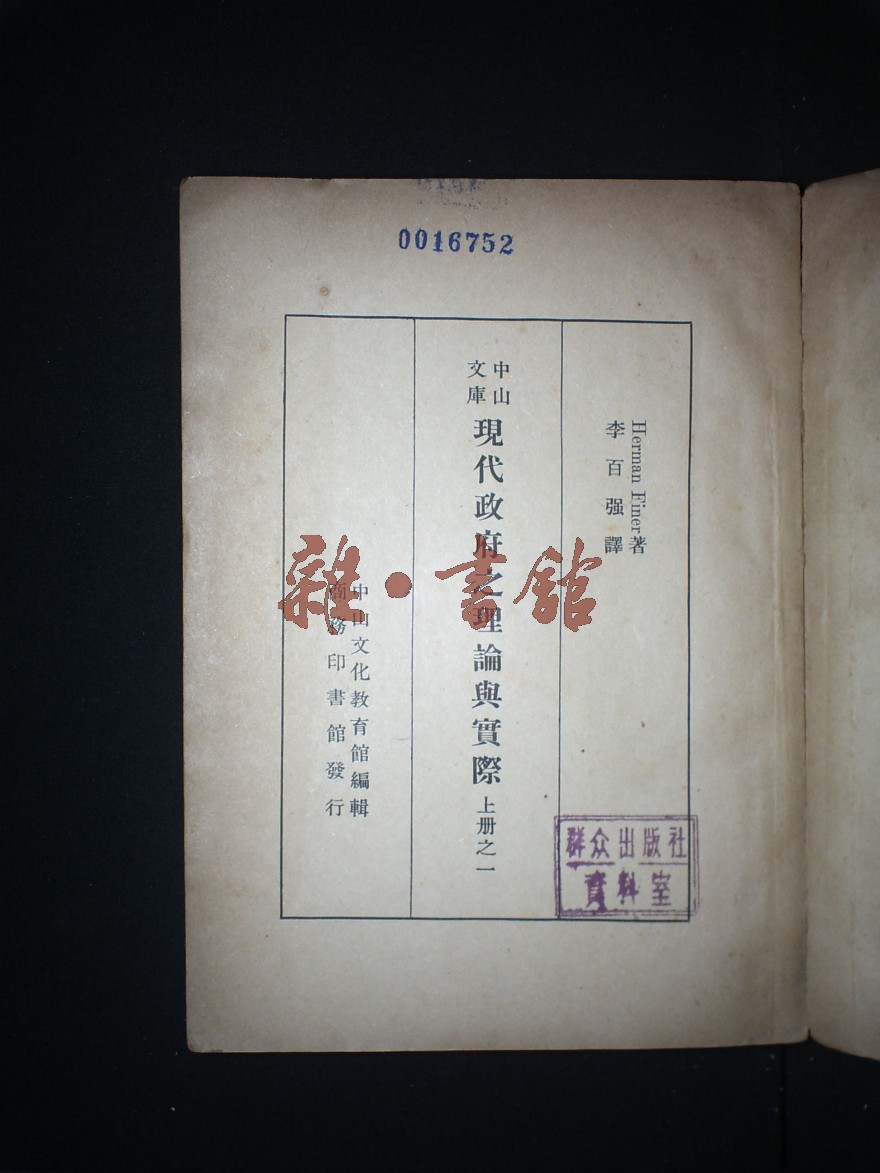 0016752
Herman Finer著
李百强譯
中山
文庫
現代政府之理論與實際 上册之一
中山文化教育館編輯
商務印書館發行
雜·書館
群众出版社
資料室